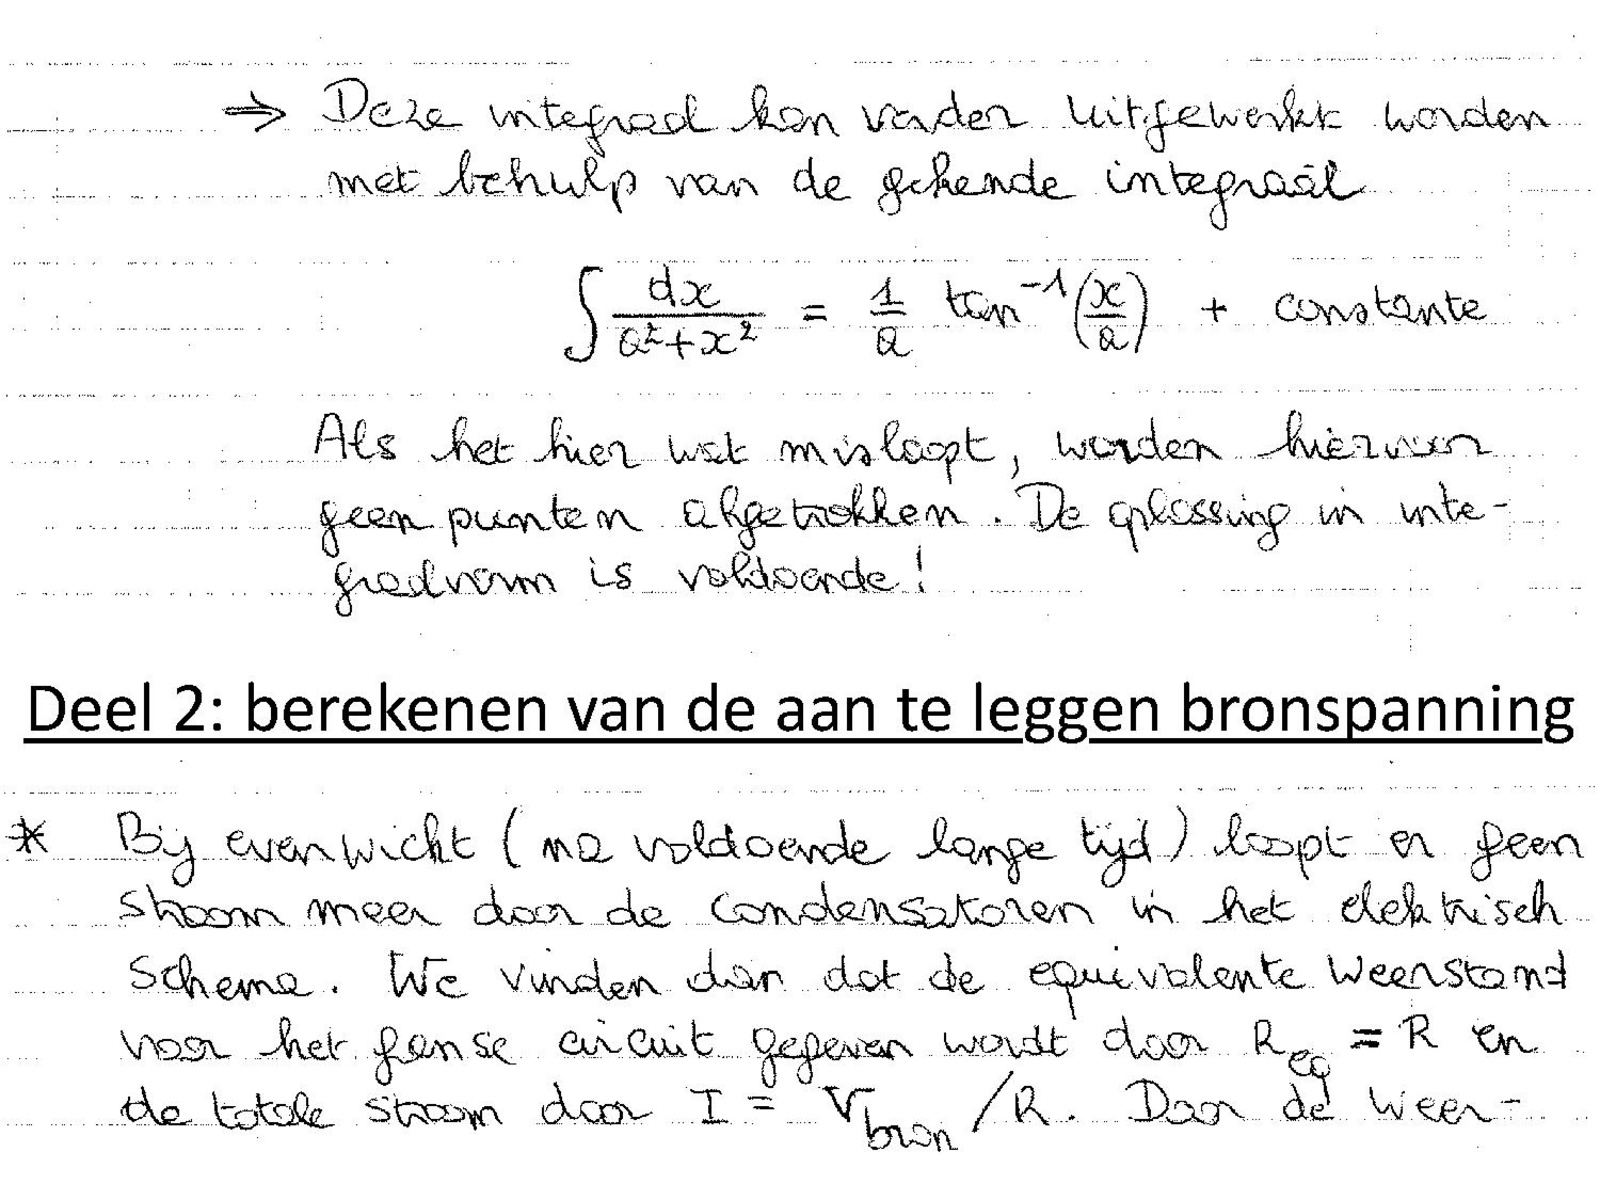 ⇒ Deze integraal kan verder uitgewerkt worden
met behulp van de gekende integraal
∫ dx/(a²+x²) = 1/a tan⁻¹(x/a) + constante
Als het hier wat misloopt, worden hiervoor
geen punten afgetrokken. De oplossing in inte-
graalvorm is voldoende!
Deel 2: berekenen van de aan te leggen bronspanning
* Bij evenwicht (na voldoende lange tijd) loopt er geen
stroom meer door de condensatoren in het elektrisch
schema. We vinden dan dat de equivalente weerstand
voor het ganse circuit gegeven wordt door R_eq = R en
de totale stroom door I = V_bron/R. Door de weer-